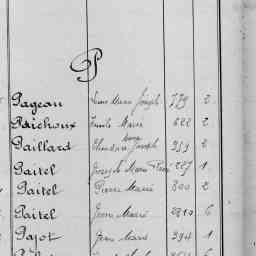 P
Pageau Louis Marie Joseph 779 2
Paichoux Emile Marie 622 2
Paillard Théodore Joseph 959 2
Paitel Joseph Marie René 227 1
Paitel Pierre Marie 800 2
Paitel Jean Marie 2810 6
Pajot Jean Marie 394 1